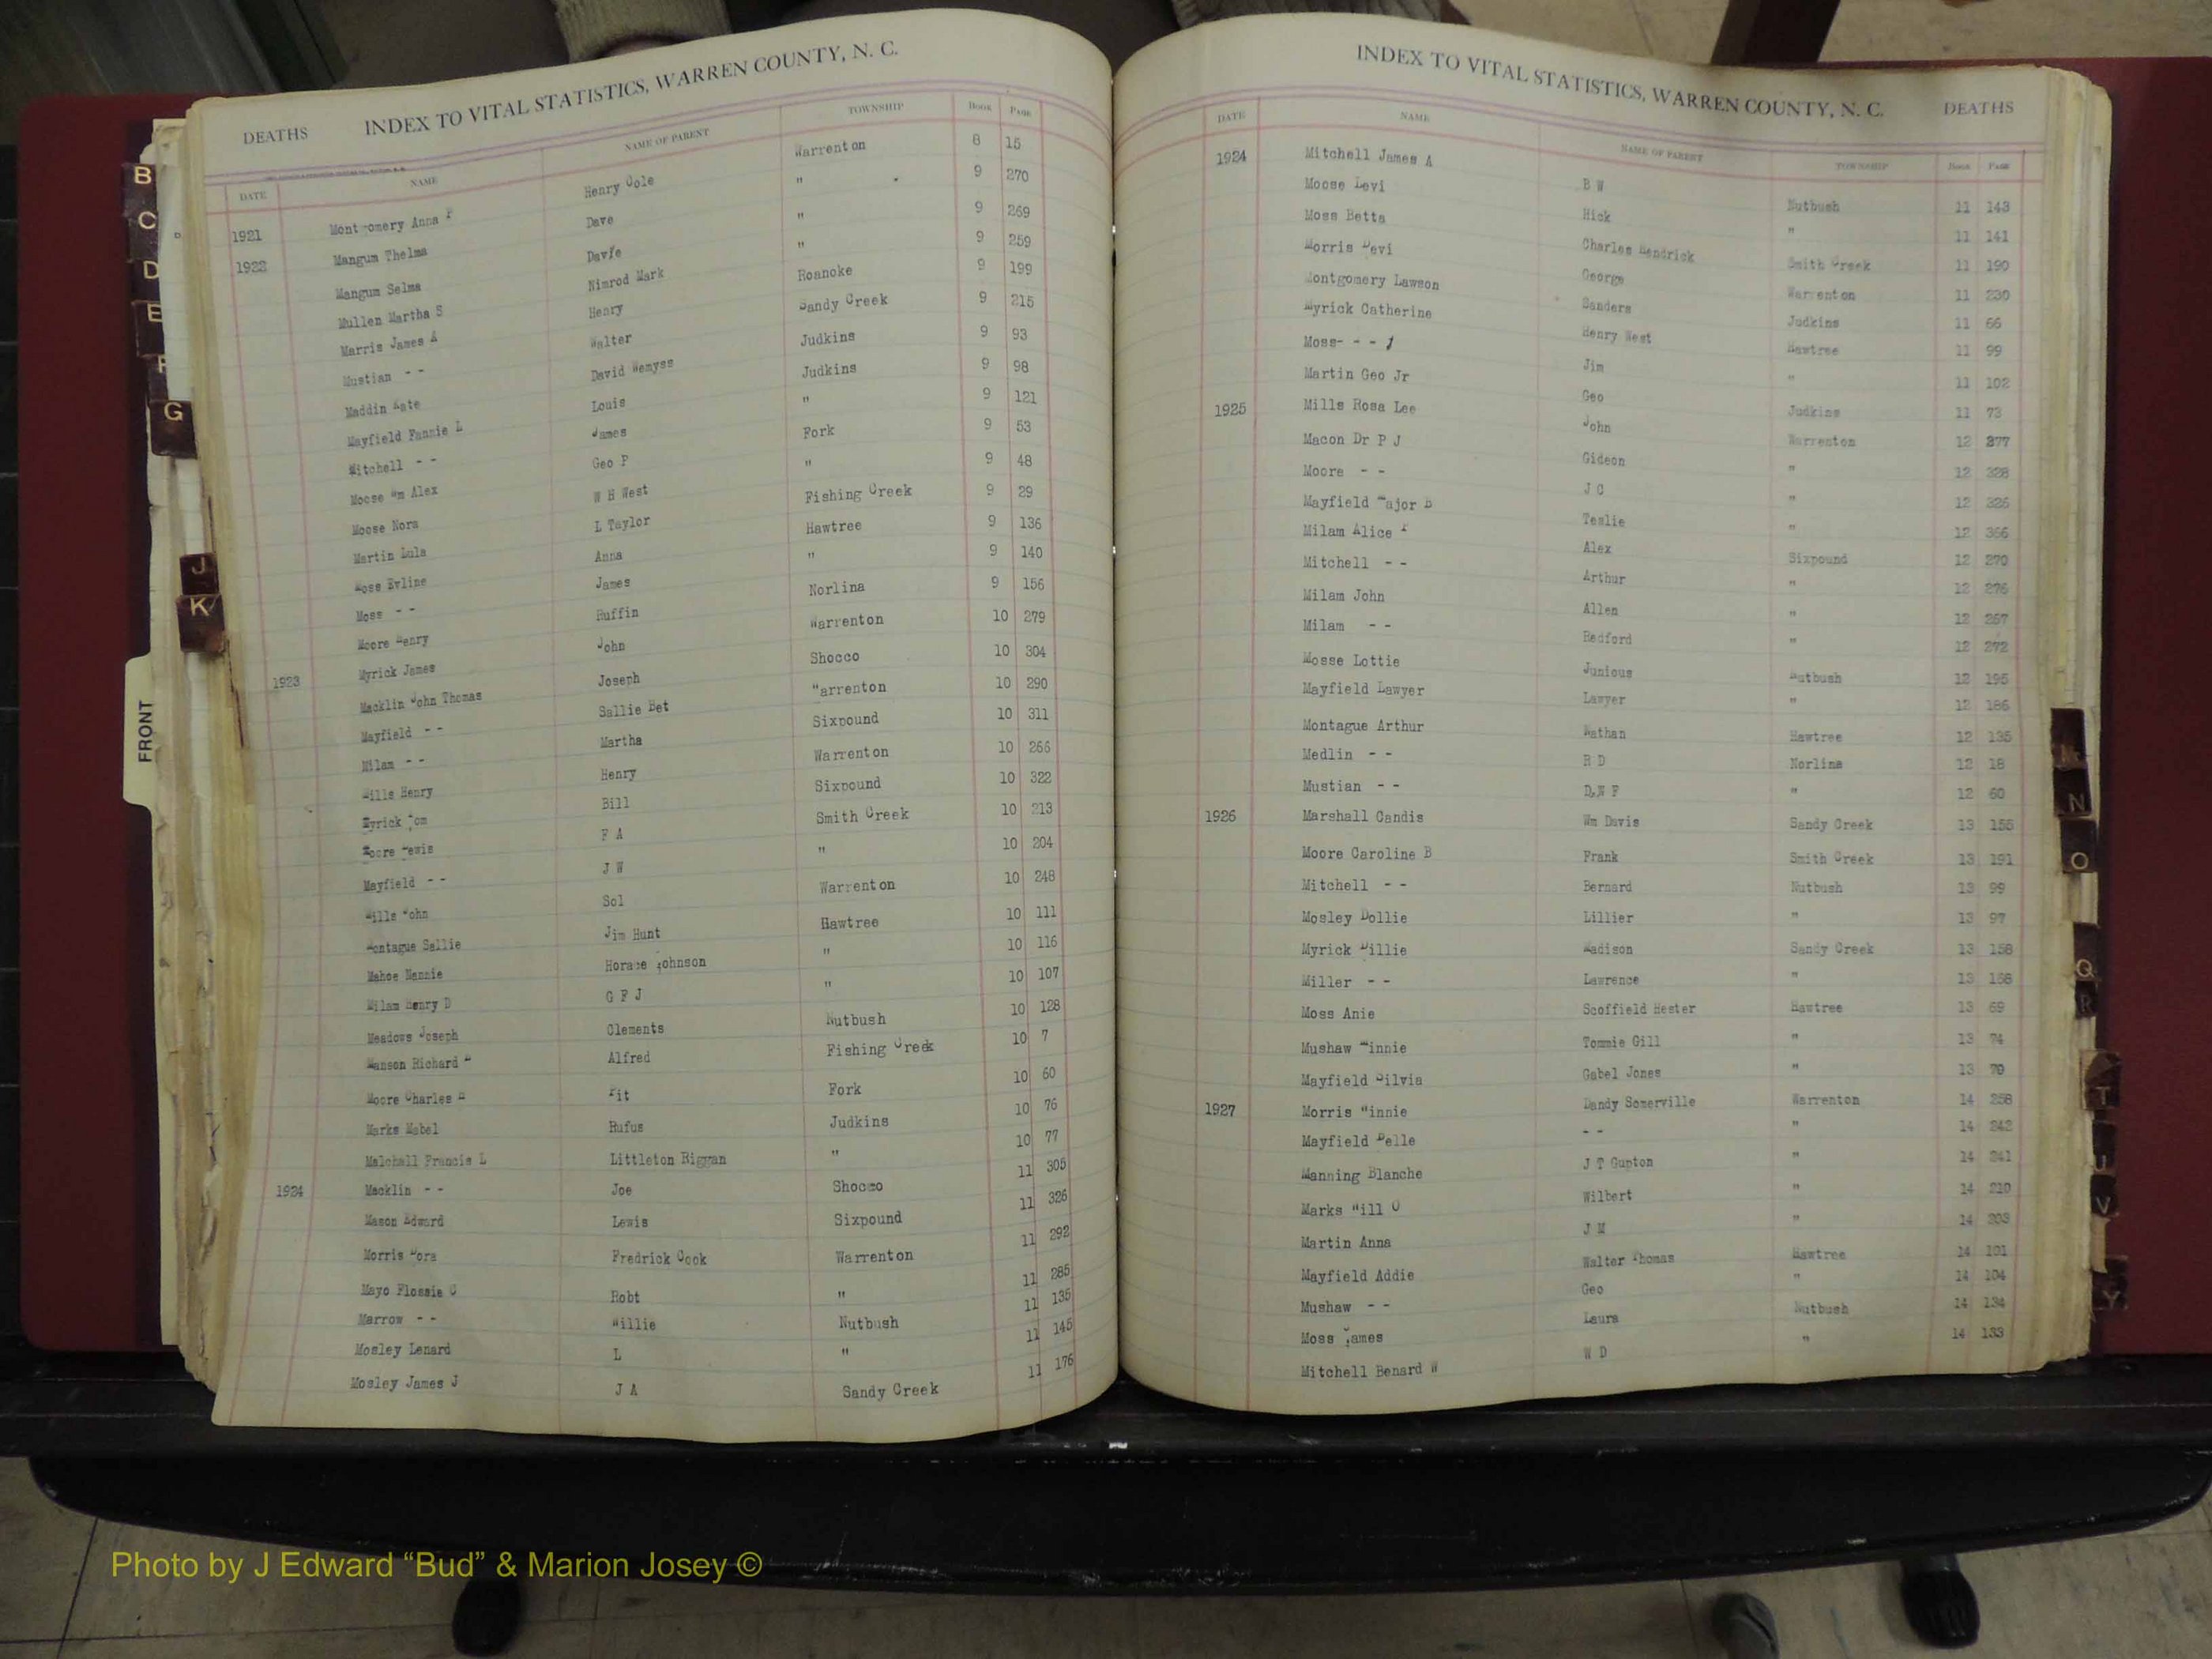 DEATHS INDEX TO VITAL STATISTICS, WARREN COUNTY, N. C.
DATE NAME NAME OF PARENT TOWNSHIP Book Page
1921 Montgomery Anna P Henry Cole Warrenton 8 15
1922 Mangum Thelma Dave " 9 270
Mangum Selma Davie " 9 269
Mullen Martha S Nimrod Mark " 9 259
Marris James A Henry Roanoke 9 199
Mustian - - Walter Sandy Creek 9 215
Maddin Kate David Wemyss Judkins 9 93
Mayfield Fannie L Louis Judkins 9 98
Mitchell - - James " 9 121
Moose Wm Alex Geo P Fork 9 53
Moose Nora W H West " 9 48
Martin Lula L Taylor Fishing Creek 9 29
Moss Evline Anna Hawtree 9 136
Moss - - James " 9 140
Moore Henry Ruffin Norlina 9 156
1923 Myrick James John Warrenton 10 279
Macklin John Thomas Joseph Shocco 10 304
Mayfield - - Sallie Bet "arrenton 10 290
Milam - - Martha Sixpound 10 311
Mills Henry Henry Warrenton 10 266
Myrick Tom Bill Sixpound 10 322
Moore Lewis F A Smith Creek 10 213
Mayfield - - J W " 10 204
Mills John Sol Warrenton 10 248
Montague Sallie Jim Hunt Hawtree 10 111
Mahoe Nannie Horace Johnson " 10 116
Milam Henry D G F J " 10 107
Meadows Joseph Clements Nutbush 10 128
Manson Richard Alfred Fishing Creek 10 7
Moore Charles Pit Fork 10 60
Marks Mabel Rufus Judkins 10 76
Malchall Francis L Littleton Riggan " 10 77
1924 Macklin - - Joe Shocco 11 305
Mason Edward Lewis Sixpound 11 326
Morris Dora Fredrick Cook Warrenton 11 292
Mayo Flossie C Robt " 11 285
Marrow - - Willie Nutbush 11 135
Mosley Lenard L " 11 145
Mosley James J J A Sandy Creek 11 176
INDEX TO VITAL STATISTICS, WARREN COUNTY, N. C. DEATHS
DATE NAME NAME OF PARENT TOWNSHIP Book Page
1924 Mitchell James A B W Nutbush 11 143
Moose Levi Hick " 11 141
Moss Betta Charles Hendrick Smith Creek 11 190
Morris Levi George Warrenton 11 230
Montgomery Lawson Sanders Judkins 11 66
Myrick Catherine Henry West Hawtree 11 99
Moss- - - Jim " 11 102
Martin Geo Jr Geo Judkins 11 73
1925 Mills Rosa Lee John Warrenton 12 277
Macon Dr P J Gideon " 12 328
Moore - - J C " 12 326
Mayfield Major B Teslie " 12 366
Milam Alice Alex Sixpound 12 270
Mitchell - - Arthur " 12 276
Milam John Allen " 12 267
Milam - - Bedford " 12 272
Mosse Lottie Junious Nutbush 12 195
Mayfield Lawyer Lawyer " 12 186
Montague Arthur Nathan Hawtree 12 135
Medlin - - R D Norlina 12 18
Mustian - - D.N F " 12 60
1926 Marshall Candis Wm Davis Sandy Creek 13 155
Moore Caroline B Frank Smith Creek 13 191
Mitchell - - Bernard Nutbush 13 99
Mosley Dollie Lillier " 13 97
Myrick Billie Madison Sandy Creek 13 158
Miller - - Lawrence " 13 166
Moss Anie Scoffield Hester Hawtree 13 69
Mushaw Minnie Tommie Gill " 13 74
Mayfield Silvia Gabel Jones " 13 79
1927 Morris "innie Dandy Somerville Warrenton 14 258
Mayfield Belle - - " 14 242
Manning Blanche J T Gupton " 14 241
Marks "ill O Wilbert " 14 210
Martin Anna J M " 14 203
Mayfield Addie Walter Thomas Hawtree 14 101
Mushaw - - Geo " 14 104
Moss James Laura Nutbush 14 134
Mitchell Benard W W D " 14 133
B
C
D
E
F
G
J
K
FRONT
N
O
Q
R
T
U
V
Y
Photo by J Edward “Bud” & Marion Josey ©